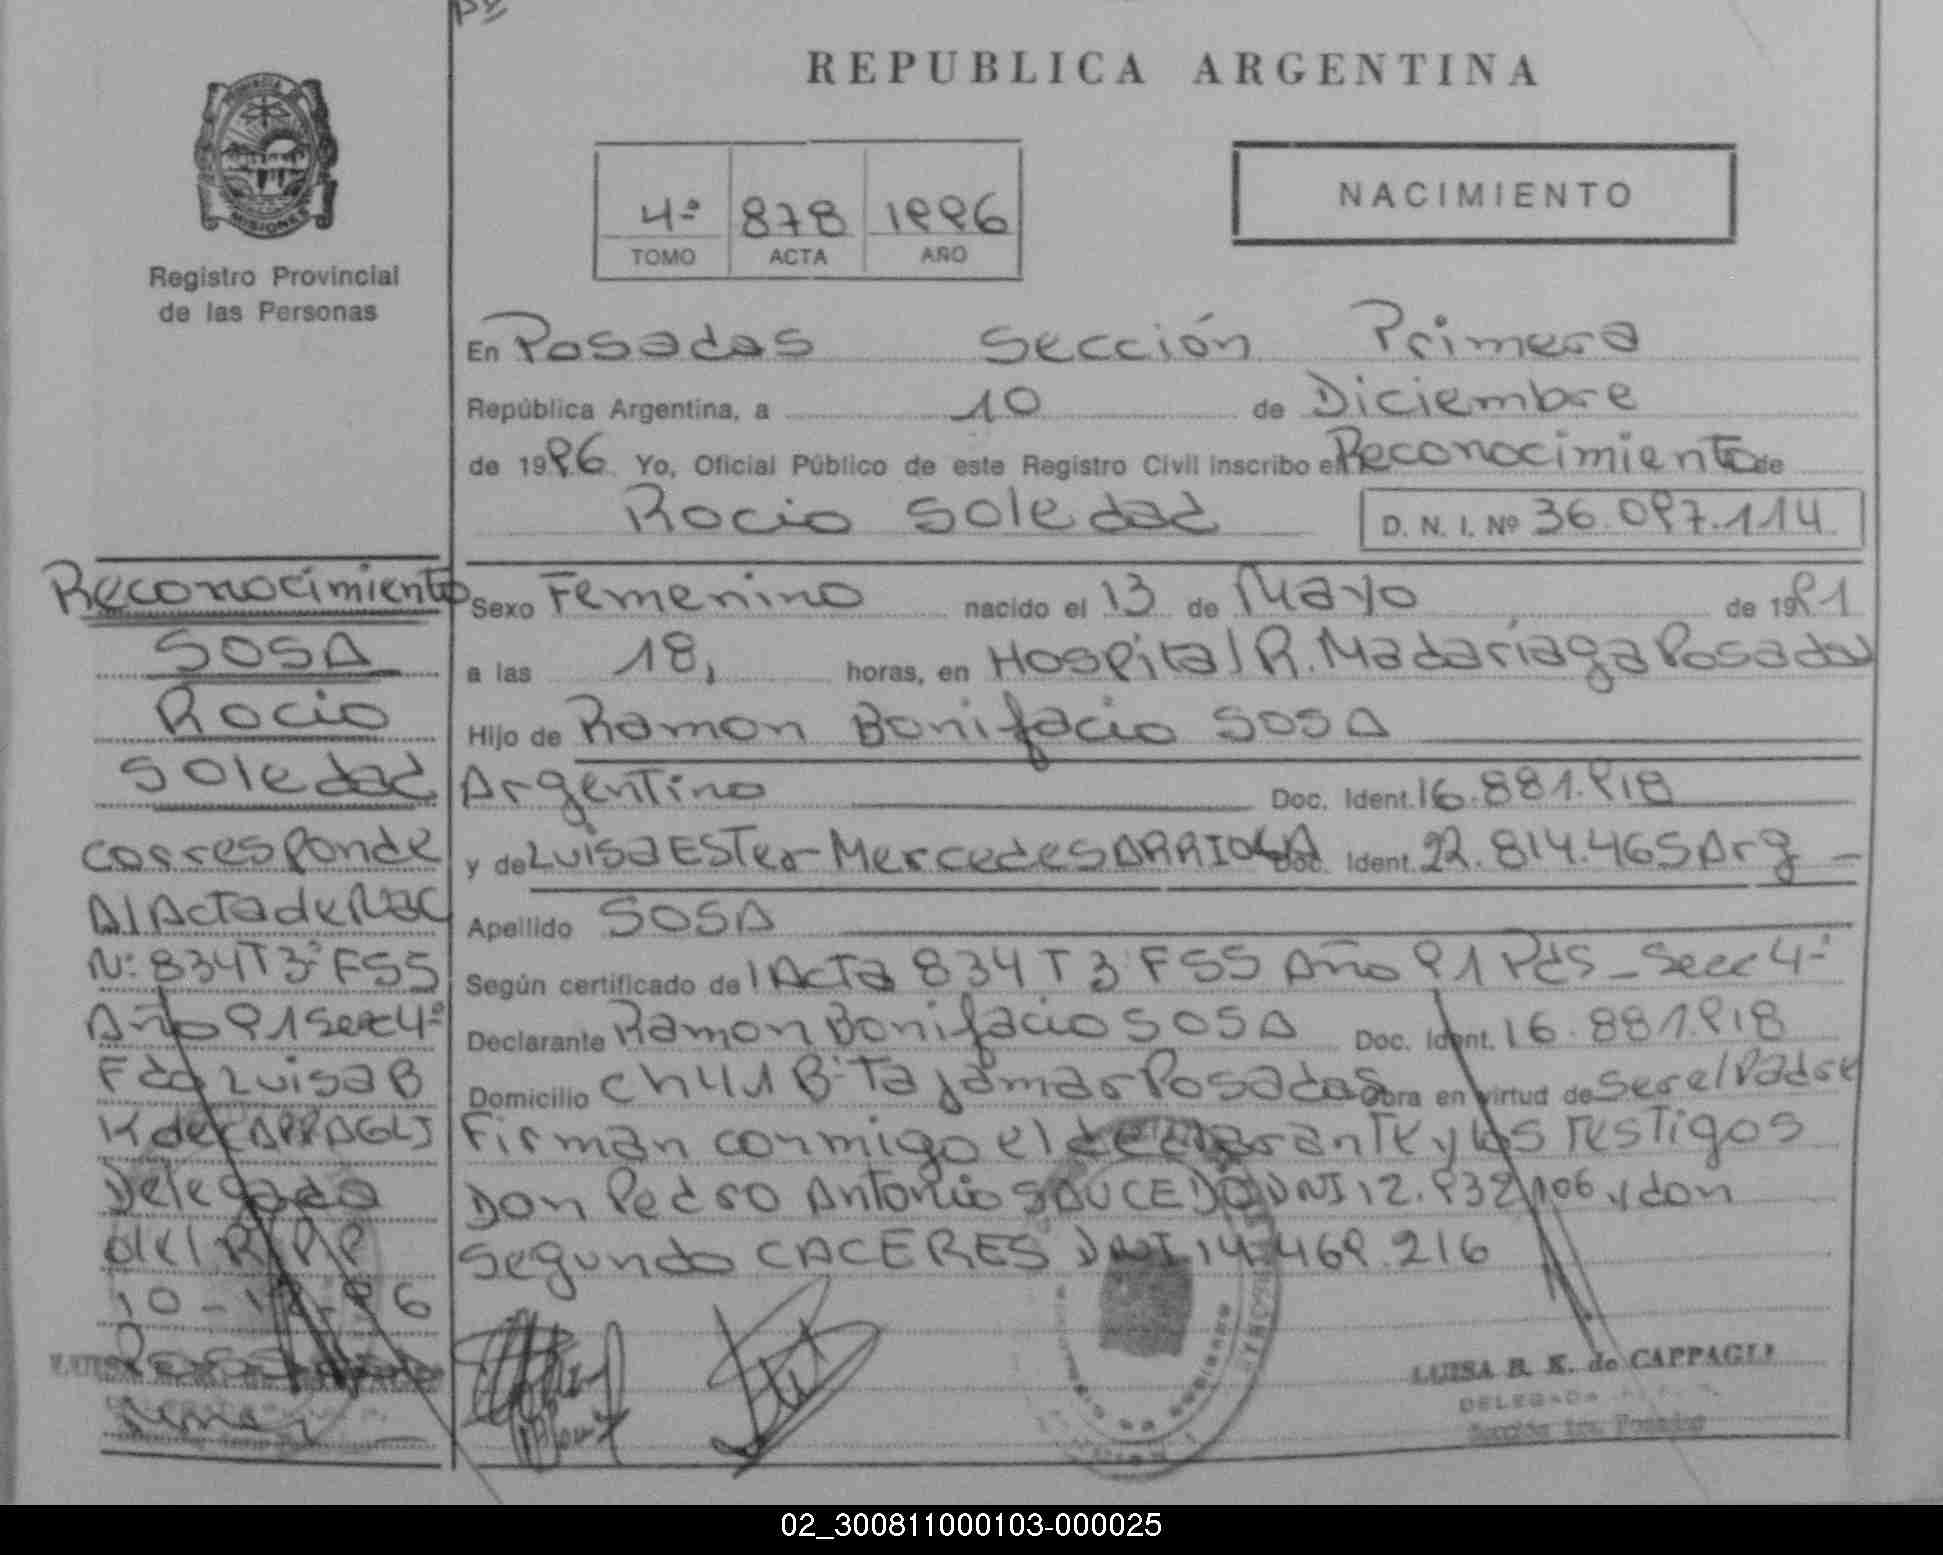 REPUBLICA ARGENTINA
PROVINCIA
MISIONES
Registro Provincial
de las Personas
4º 878 1996
TOMO ACTA AÑO
NACIMIENTO
En Posadas Sección Primera
República Argentina, a 10 de Diciembre
de 1996 Yo, Oficial Público de este Registro Civil inscribo el Reconocimiento de
Rocio Soledad D. N. I. Nº 36.097.114
Sexo Femenino nacido el 13 de Mayo de 1991
a las 18, horas, en Hospital R. Madariaga Posadas
Hijo de Ramon Bonifacio SOSA
Argentino Doc. Ident. 16.881.918
y de Luisa ESTer Mercedes ARRIOLA Doc. Ident. 22.814.465 Arg
Apellido SOSA
Según certificado de l Acta 834 T 3º F 55 Año 91 Pds - Secc 4º
Declarante Ramon Bonifacio SOSA Doc. Ident. 16.881.918
Domicilio Ch 41 Bº Tajamar Posadas Obra en virtud de ser el Padre
Firman conmigo el declarante y los Testigos
Don Pedro Antonio SAUCEDO DNI 12.932.106 y don
Segundo CACERES DNI 14.469.216
Reconocimiento
SOSA
Rocio
Soledad
corresponde
Al Acta de Nac
Nº 834 T 3º F 55
Año 91 Sec 4º
Fdo Luisa B
K de CAPPAGLI
Delegada
del R.P.P
10-12-96
LUISA B. K. de CAPPAGLI
DELEGADA
Sección 1ra. Posadas
02_300811000103-000025